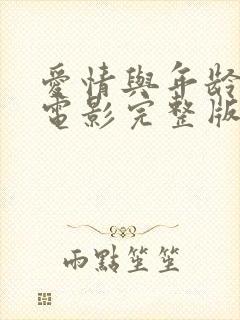 愛情與年齡
電影完整版
雨點笙笙